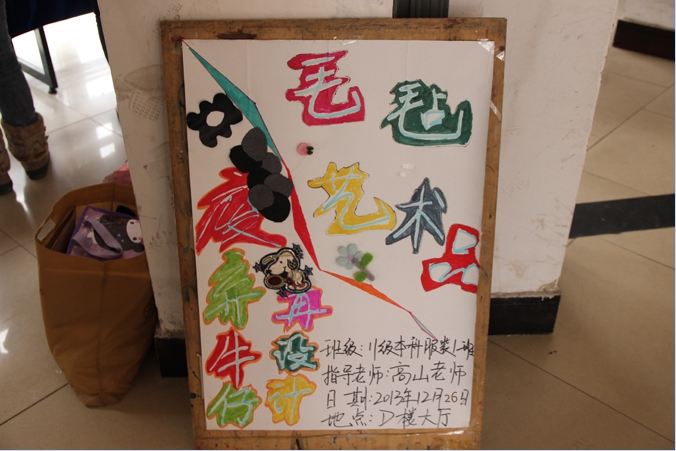 毛毡艺术品
废弃牛仔
再设计
班级:11级本科服装1班
指导老师:高山老师
日期:2013年12月26日
地点:D楼大厅